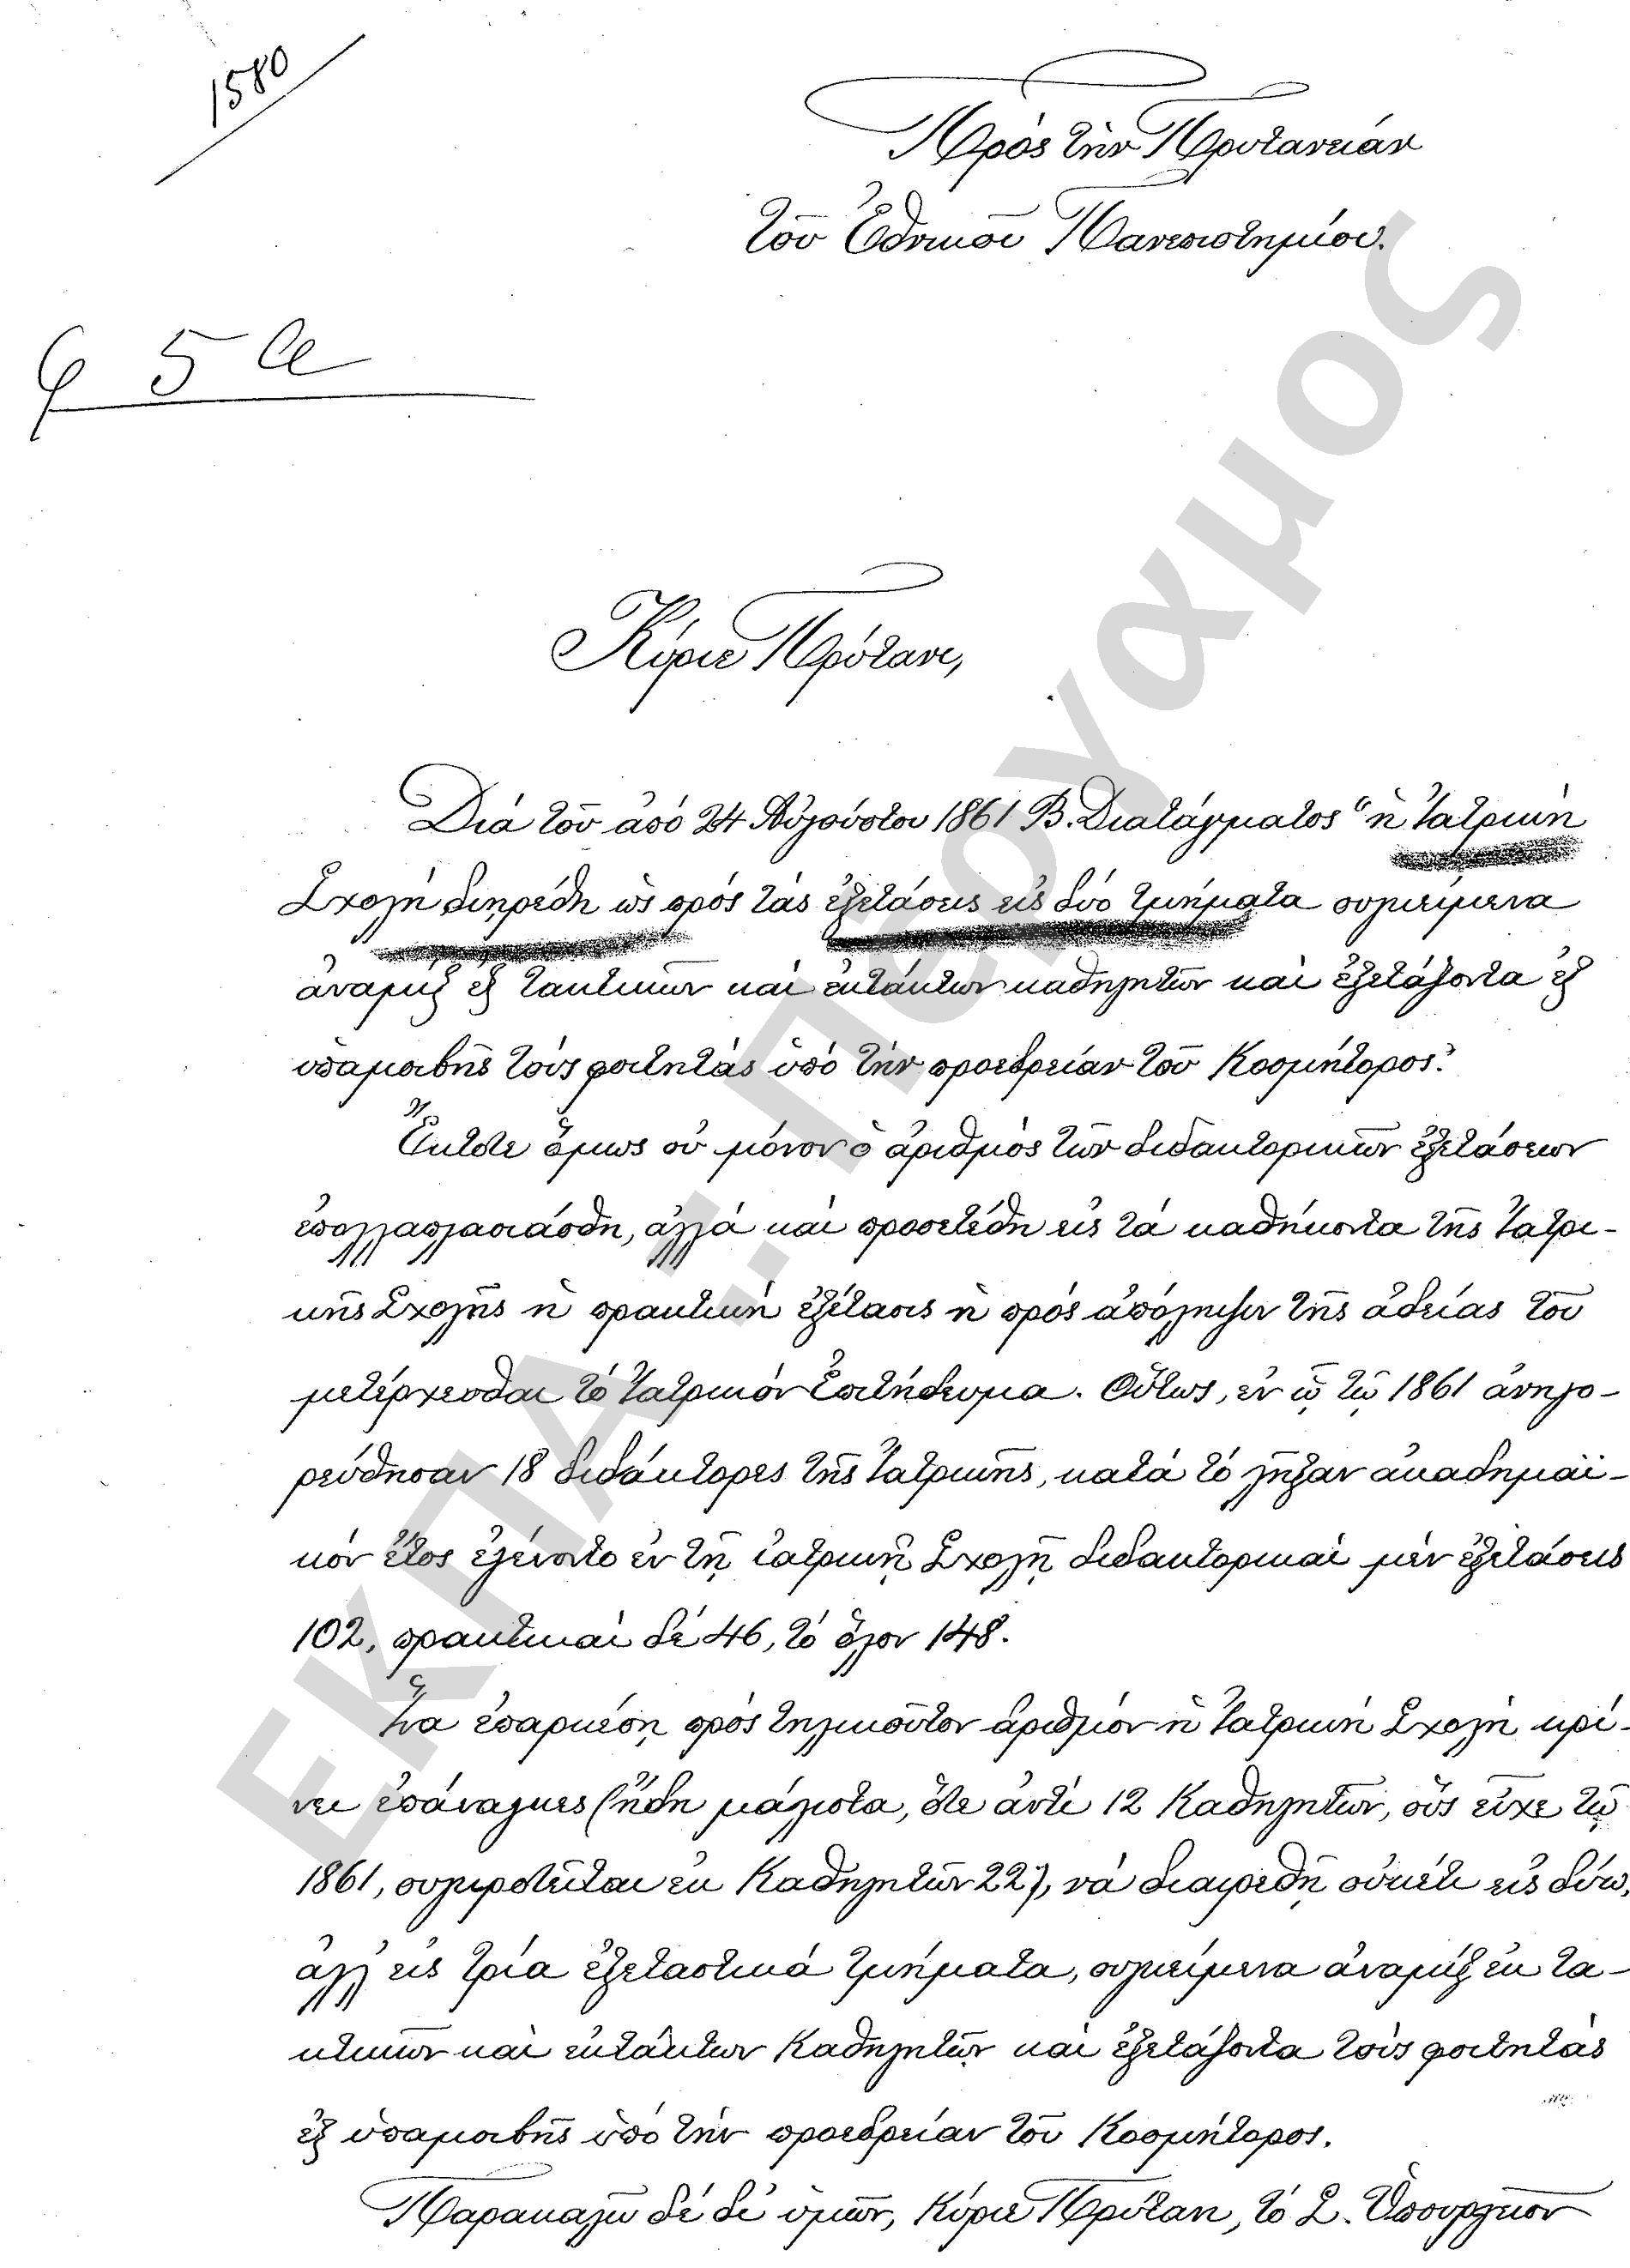 1580
Πρὸς τὴν Πρυτανείαν
τοῦ Ἐθνικοῦ Πανεπιστημίου.
φ 5 α
Κύριε Πρύτανι,
Διὰ τοῦ ἀπὸ 24 Αὐγούστου 1861 Β. Διατάγματος "ἡ Ἰατρικὴ
Σχολὴ διῃρέθη ὡς πρὸς τὰς ἐξετάσεις εἰς δύο τμήματα συγκείμενα
ἀναμὶξ ἐξ τακτικῶν καὶ ἐκτάκτων καθηγητῶν καὶ ἐξετάζοντα ἐξ
ὑπαμοιβῆς τοὺς φοιτητὰς ὑπὸ τὴν προεδρείαν τοῦ Κοσμήτορος."
Ἔκτοτε ὅμως οὐ μόνον ὁ ἀριθμὸς τῶν διδακτορικῶν ἐξετάσεων
ἐπολλαπλασιάσθη, ἀλλὰ καὶ προσετέθη εἰς τὰ καθήκοντα τῆς Ἰατρι-
κῆς Σχολῆς ἡ πρακτικὴ ἐξέτασις ἡ πρὸς ἀπόληψιν τῆς ἀδείας τοῦ
μετέρχεσθαι τὸ Ἰατρικὸν Ἐπιτήδευμα. Οὕτως, ἐν ᾧ τῷ 1861 ἀνηγο-
ρεύθησαν 18 διδάκτορες τῆς Ἰατρικῆς, κατὰ τὸ λῆξαν ἀκαδημαϊ-
κὸν ἔτος ἐγένοντο ἐν τῇ ἰατρικῇ Σχολῇ διδακτορικαὶ μὲν ἐξετάσεις
102, πρακτικαὶ δὲ 46, τὸ ὅλον 148.
Ἵνα ἐπαρκέσῃ πρὸς τηλικοῦτον ἀριθμὸν ἡ Ἰατρικὴ Σχολὴ κρί-
νει ἐπάναγκες (ἤδη μάλιστα, ὅτε ἀντὶ 12 Καθηγητῶν, οὓς εἶχε τῷ
1861, συγκροτεῖται ἐκ Καθηγητῶν 22), νὰ διαιρεθῇ οὐκέτι εἰς δύω,
ἀλλ' εἰς τρία ἐξεταστικὰ τμήματα, συγκείμενα ἀναμὶξ ἐκ τα-
κτικῶν καὶ ἐκτάκτων Καθηγητῶν καὶ ἐξετάζοντα τοὺς φοιτητὰς
ἐξ ὑπαμοιβῆς ὑπὸ τὴν προεδρείαν τοῦ Κοσμήτορος.
Παρακαλῶ δὲ δι' ὑμῶν, Κύριε Πρύτανι, τὸ Σ. Ὑπουργεῖον
ΕΚΠΑ.: Πέργαμος